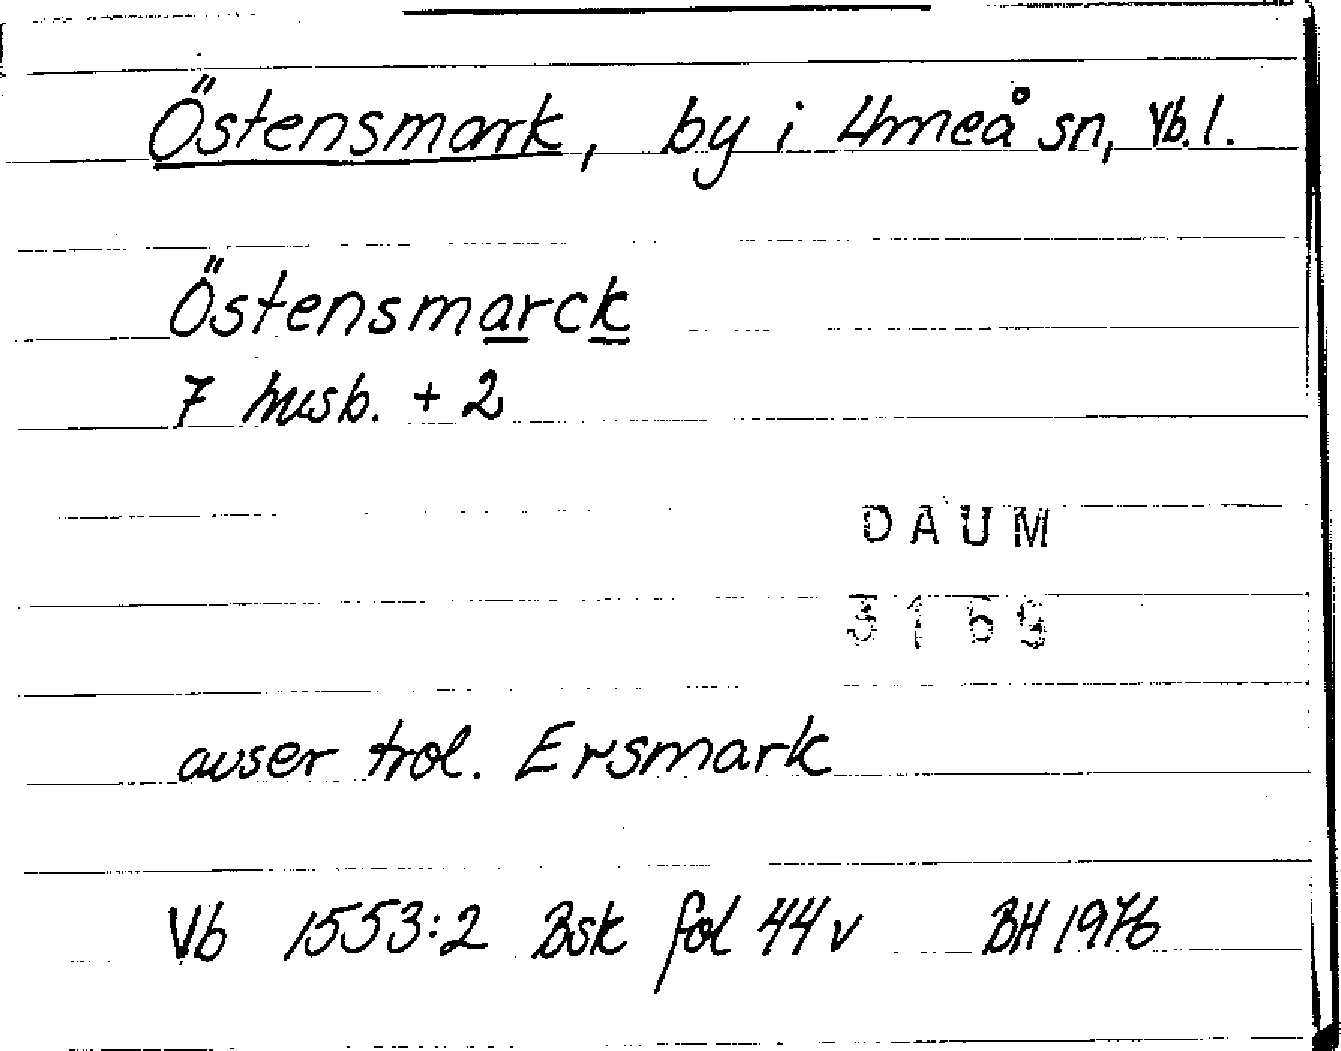 Östensmark, by i Umeå sn, Vb. l.
Östensmarck
7 husb. + 2
DAUM
3169
avser trol. Ersmark
Vb 1553:2 Bsk fol 44 v BH 1976